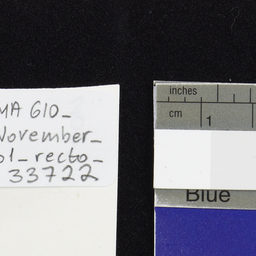 MA 610_
November_
ol_recto_
33722
inches
cm 1
Blue